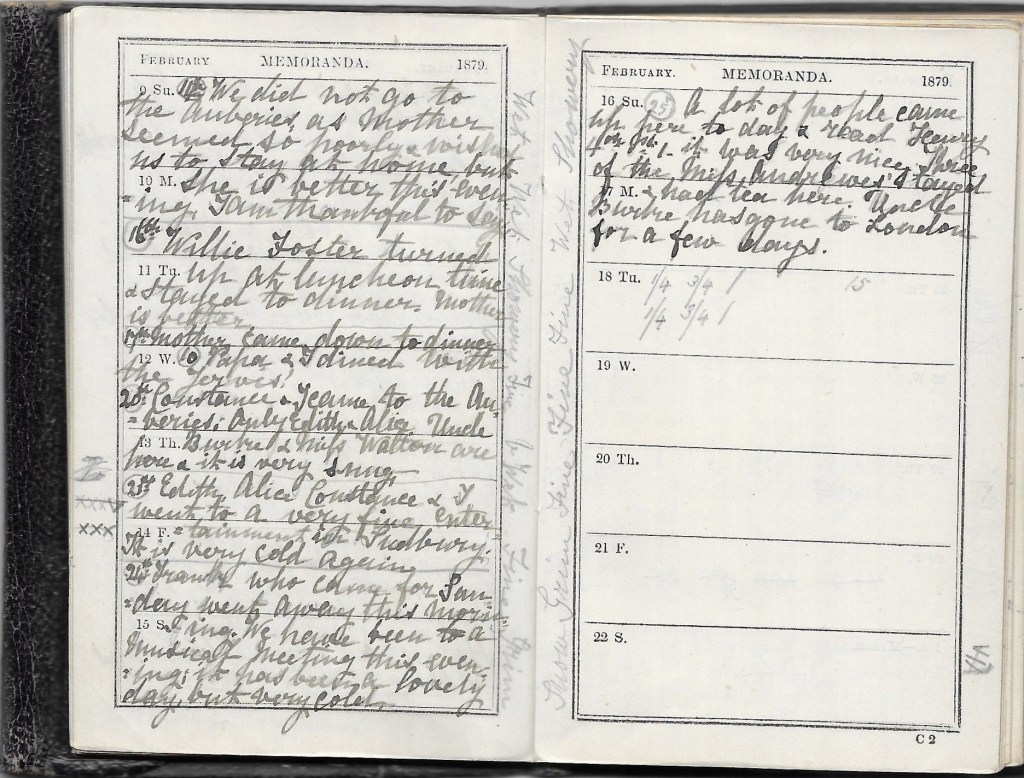 FEBRUARY MEMORANDA. 1879.
9 Su. We did not go to
the Auberies as Mother
seemed so poorly & wished
us to stay at home, but
10 M. She is better this even-
=ing. I am thankful to say
16th Willie Foster turned
11 Tu. up at luncheon time
& stayed to dinner. Mother
is better
17th Mother came down to dinner
12 W. Papa & I dined with
the
20th Constance & I came to the Au-
=beries: only Edith & Alice Uncle
13 Th. Burke & Miss Watton are
here & it is very snug.
21st Edith, Alice Constance & I
went to a very fine enter-
14 F. =tainment in Sudbury.
It is very cold again
24th Frank who came for Sun-
=day went away this morn-
15 S. =ing. We have been to a
Musical Meeting this even-
=ing: it has been a lovely
day, but very cold.
xxx
Wet Wet Showery Fine Fine Grim
Snow Grim Fine Fine Fine Wet Showery
FEBRUARY. MEMORANDA. 1879.
16 Su. 25 A lot of people came
up here to day & read Henry
it was very nice. Three
of the Miss Andrewes' stayed
17 M. & had tea here. Uncle
Burke has gone to London
for a few days.
18 Tu. 1/4 3/4 1 15
1/4 3/4 1
19 W.
20 Th.
21 F.
22 S.
C 2